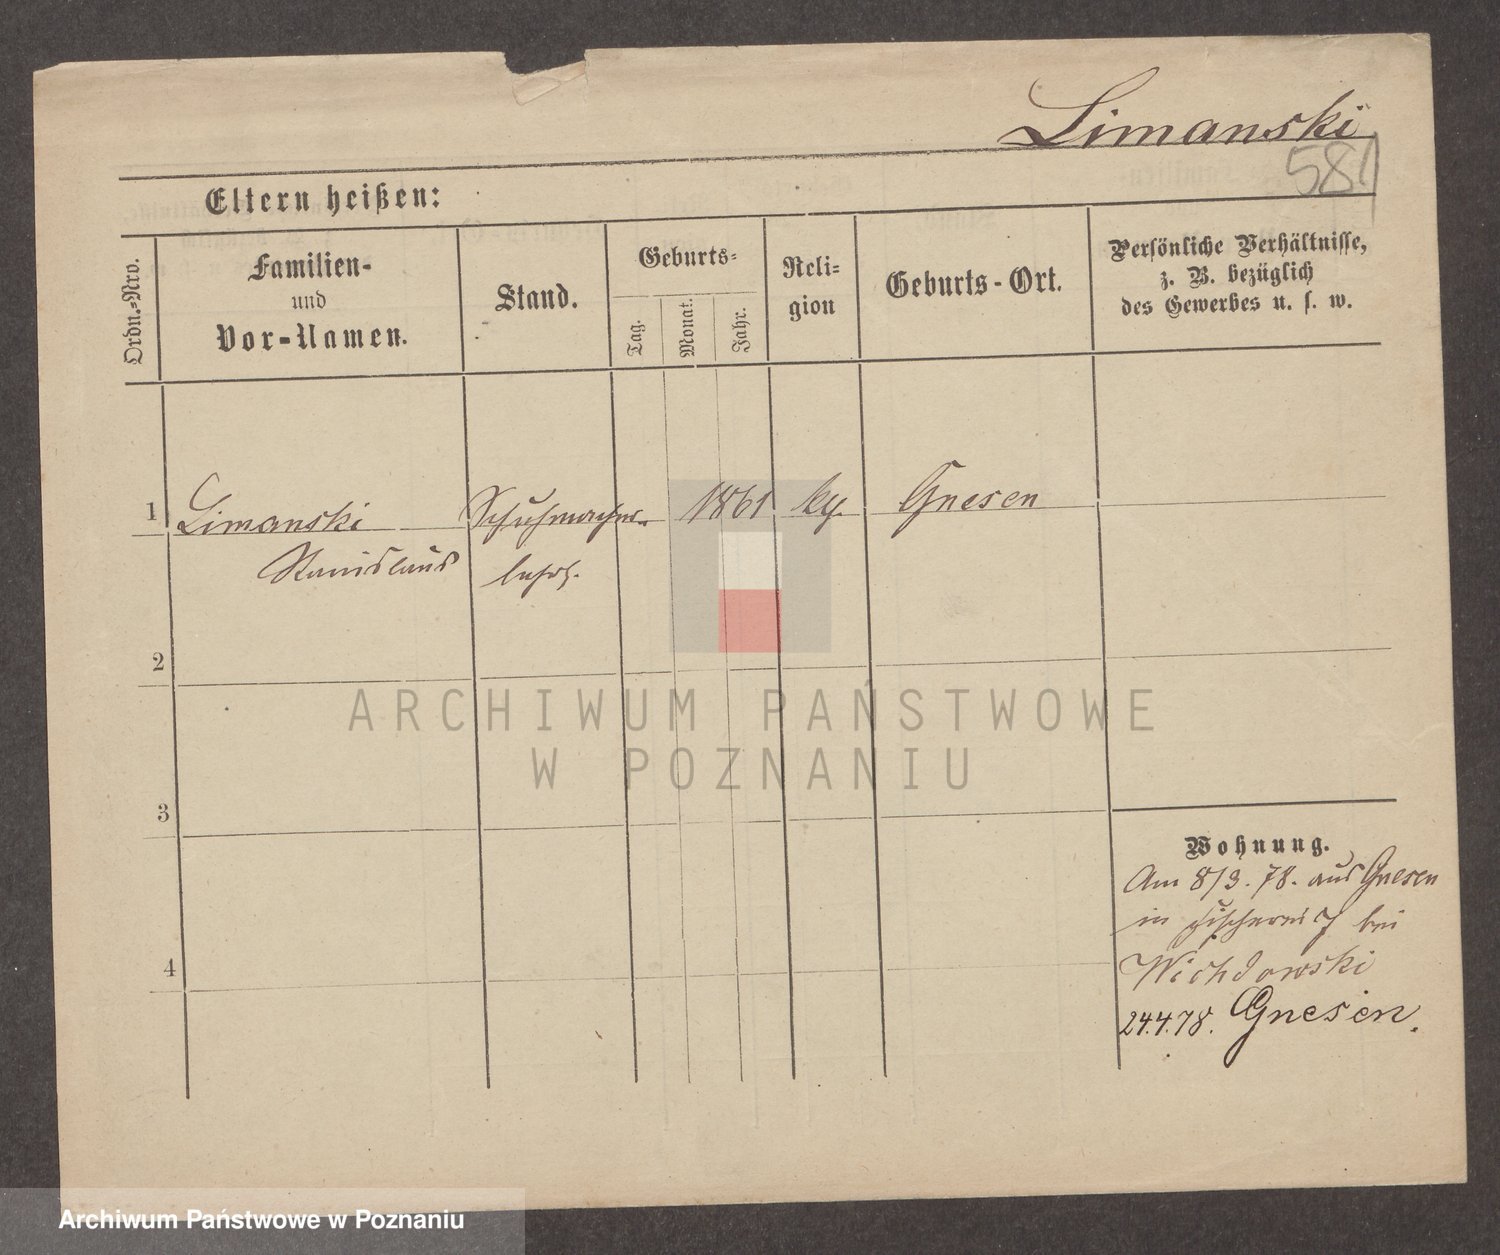 Limanski
581
Eltern heißen:
Ordn.-Nro.
Familien-
und
Vor-Namen.
Stand.
Geburts-
Tag.
Monat.
Jahr.
Reli-
gion
Geburts-Ort.
Persönliche Verhältnisse,
z. B. bezüglich
des Gewerbes u. s. w.
1
Limanski
Schuhmacher-
1861
Gnesen
Stanislaus
lehrl.
2
3
4
Wohnung.
Am 8/3. 78. aus Gnesen
in Fischerei 7 bei
Wichdowski
24.4.78. Gnesen.
ARCHIWUM PAŃSTWOWE
W POZNANIU
Archiwum Państwowe w Poznaniu